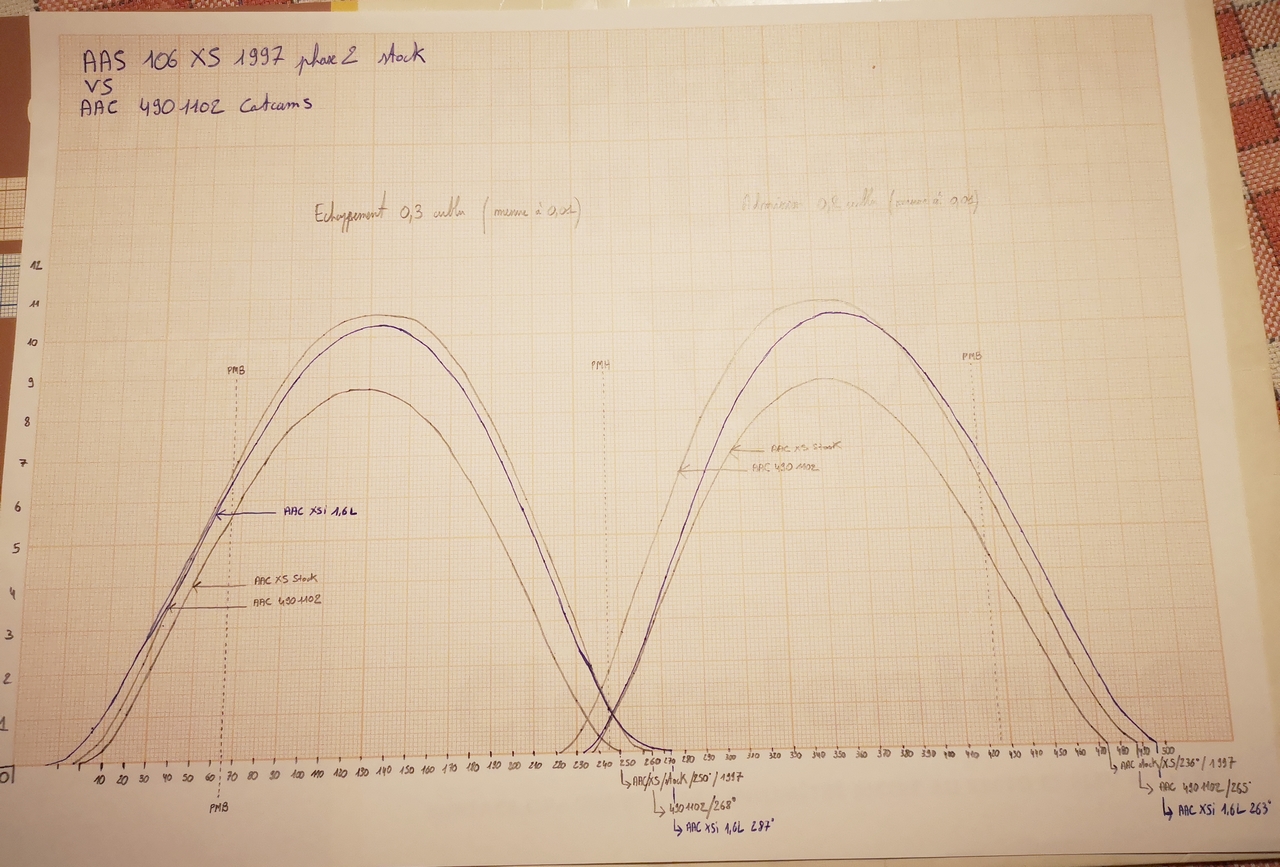 AAS 106 XS 1997 phase 2 stock
VS
AAC 4901102 Catcams
Echappement 0,3 culbu (mesure à 0,01)
Admission 0,2 culbu (mesure à 0,01)
12
11
10
9
8
7
6
5
4
3
2
1
0
PMB
PMH
PMB
AAC XS Stock
AAC 4901102
AAC XSi 1,6L
AAC XS Stock
AAC 4901102
10 20 30 40 50 60 70 80 90 100 110 120 130 140 150 160 170 180 190 200 210 220 230 240 250 260 270 280 290 300 310 320 330 340 350 360 370 380 390 400 410 420 430 440 450 460 470 480 490 500
PMB
AAC/XS/stock/250°/1997
4901102/268°
AAC XSi 1,6L 287°
AAC stock/XS/236°/1997
AAC 4901102/265°
AAC XSi 1,6L 263°